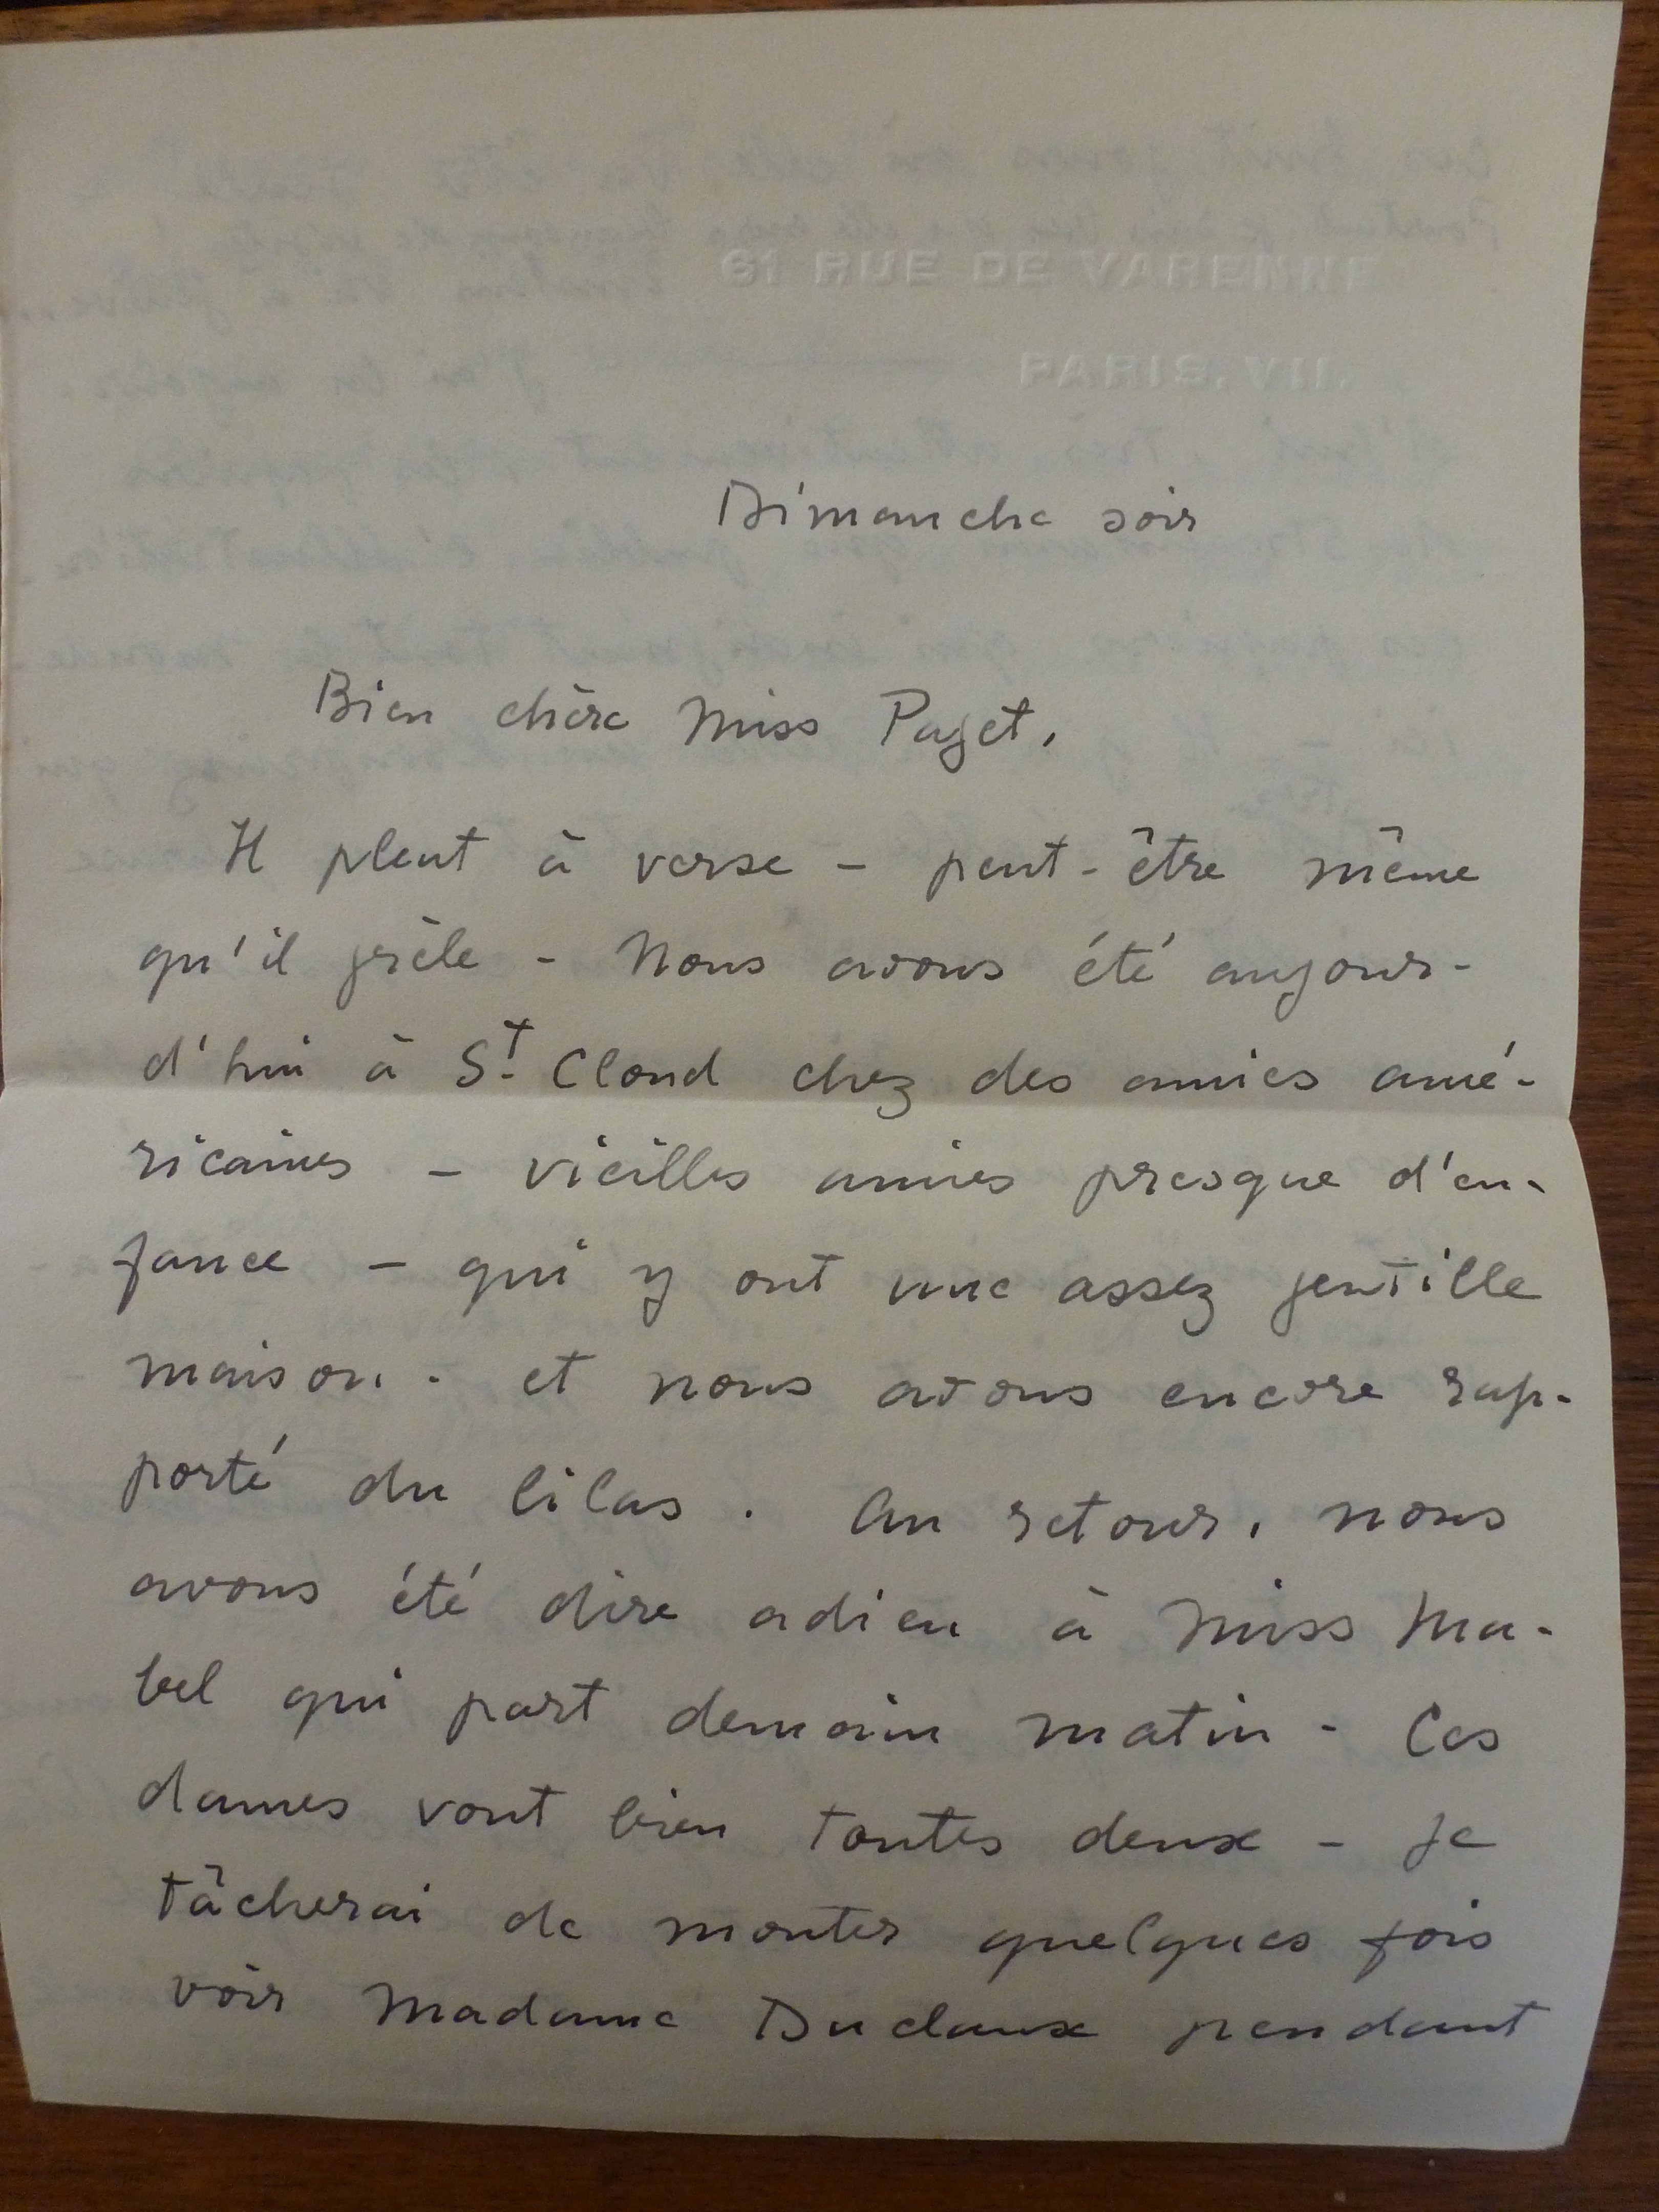 61 RUE DE VARENNE
PARIS. VII.
Dimanche soir
Bien chère Miss Paget,
Il pleut à verse – peut-être même
qu'il grêle - Nous avons été aujour-
d'hui à St. Cloud chez des amies amé-
ricaines – vieilles amies presque d'en-
fance – qui y ont une assez gentille
maison. - et nous avons encore rap-
porté du lilas. Au retour, nous
avons été dire adieu à Miss Ma-
bel qui part demain matin - Ces
dames vont bien toutes deux – Je
tâcherai de monter quelques fois
voir Madame Duclaux pendant